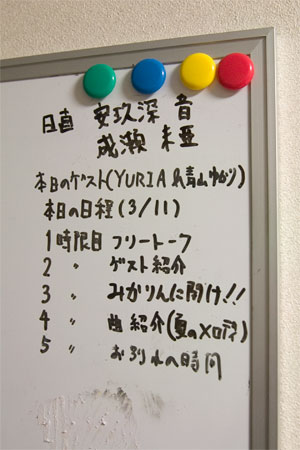 日直 安玖深 音
成瀬 未亜
本日のゲスト(YURIA &青山ゆかり)
本日の日程(3/11)
1時限目 フリートーク
2 〃 ゲスト紹介
3 〃 みかりんに聞け!!
4 〃 曲紹介(夏の
5 〃 お別れの時間